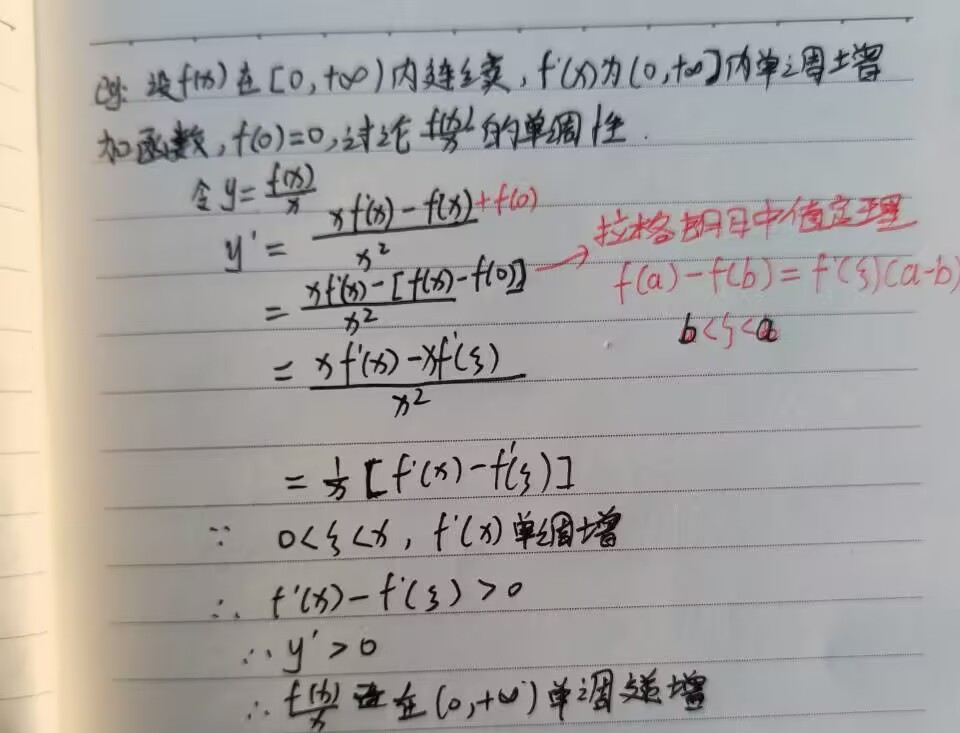 例: 设f(x)在[0,+∞)内连续,f'(x)为(0,+∞]内单调增
加函数,f(0)=0,讨论 f(x)/x 的单调性.
令 y = f(x)/x
y' = (xf'(x) - f(x) + f(0))/x²
= (xf'(x) - [f(x) - f(0)])/x² → 拉格朗日中值定理
f(a) - f(b) = f'(ξ)(a-b)
b<ξ<a
= (xf'(x) - xf'(ξ))/x²
= 1/x [f'(x) - f'(ξ)]
∵ 0<ξ<x, f'(x)单调增
∴ f'(x) - f'(ξ) > 0
∴ y' > 0
∴ f(x)/x 在(0,+∞)单调递增